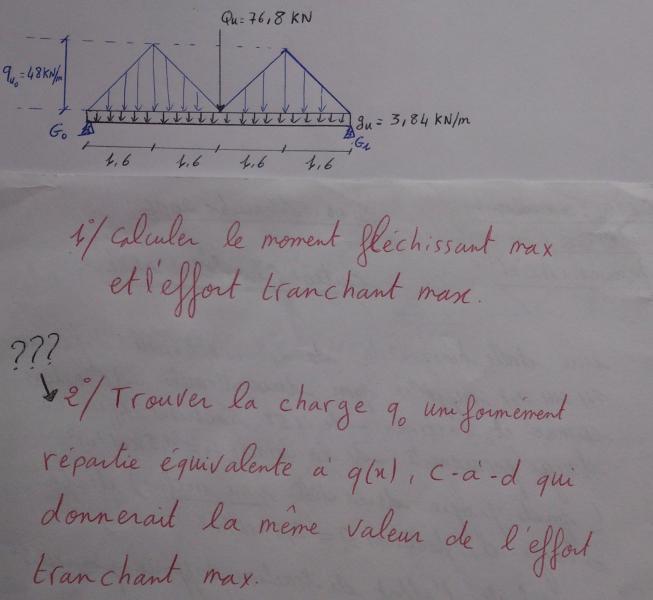 Qu = 76,8 KN
qu₀ = 48 KN/m
gu = 3,84 KN/m
G₀
G₁
1,6 1,6 1,6 1,6
1°/ Calculer le moment fléchissant max
et l'effort tranchant max.
???
2°/ Trouver la charge q₀ uniformément
répartie équivalente à q(x), c-à-d qui
donnerait la même valeur de l'effort
tranchant max.